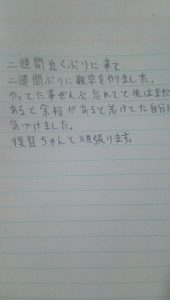 二週間近くぶりに来て
二週間ぶりに数学をやりました。
やってた事ぜんぶ忘れてて先はまだ
あると余裕があると怠けてた自分に
気づけました。
復習ちゃんと頑張ります。